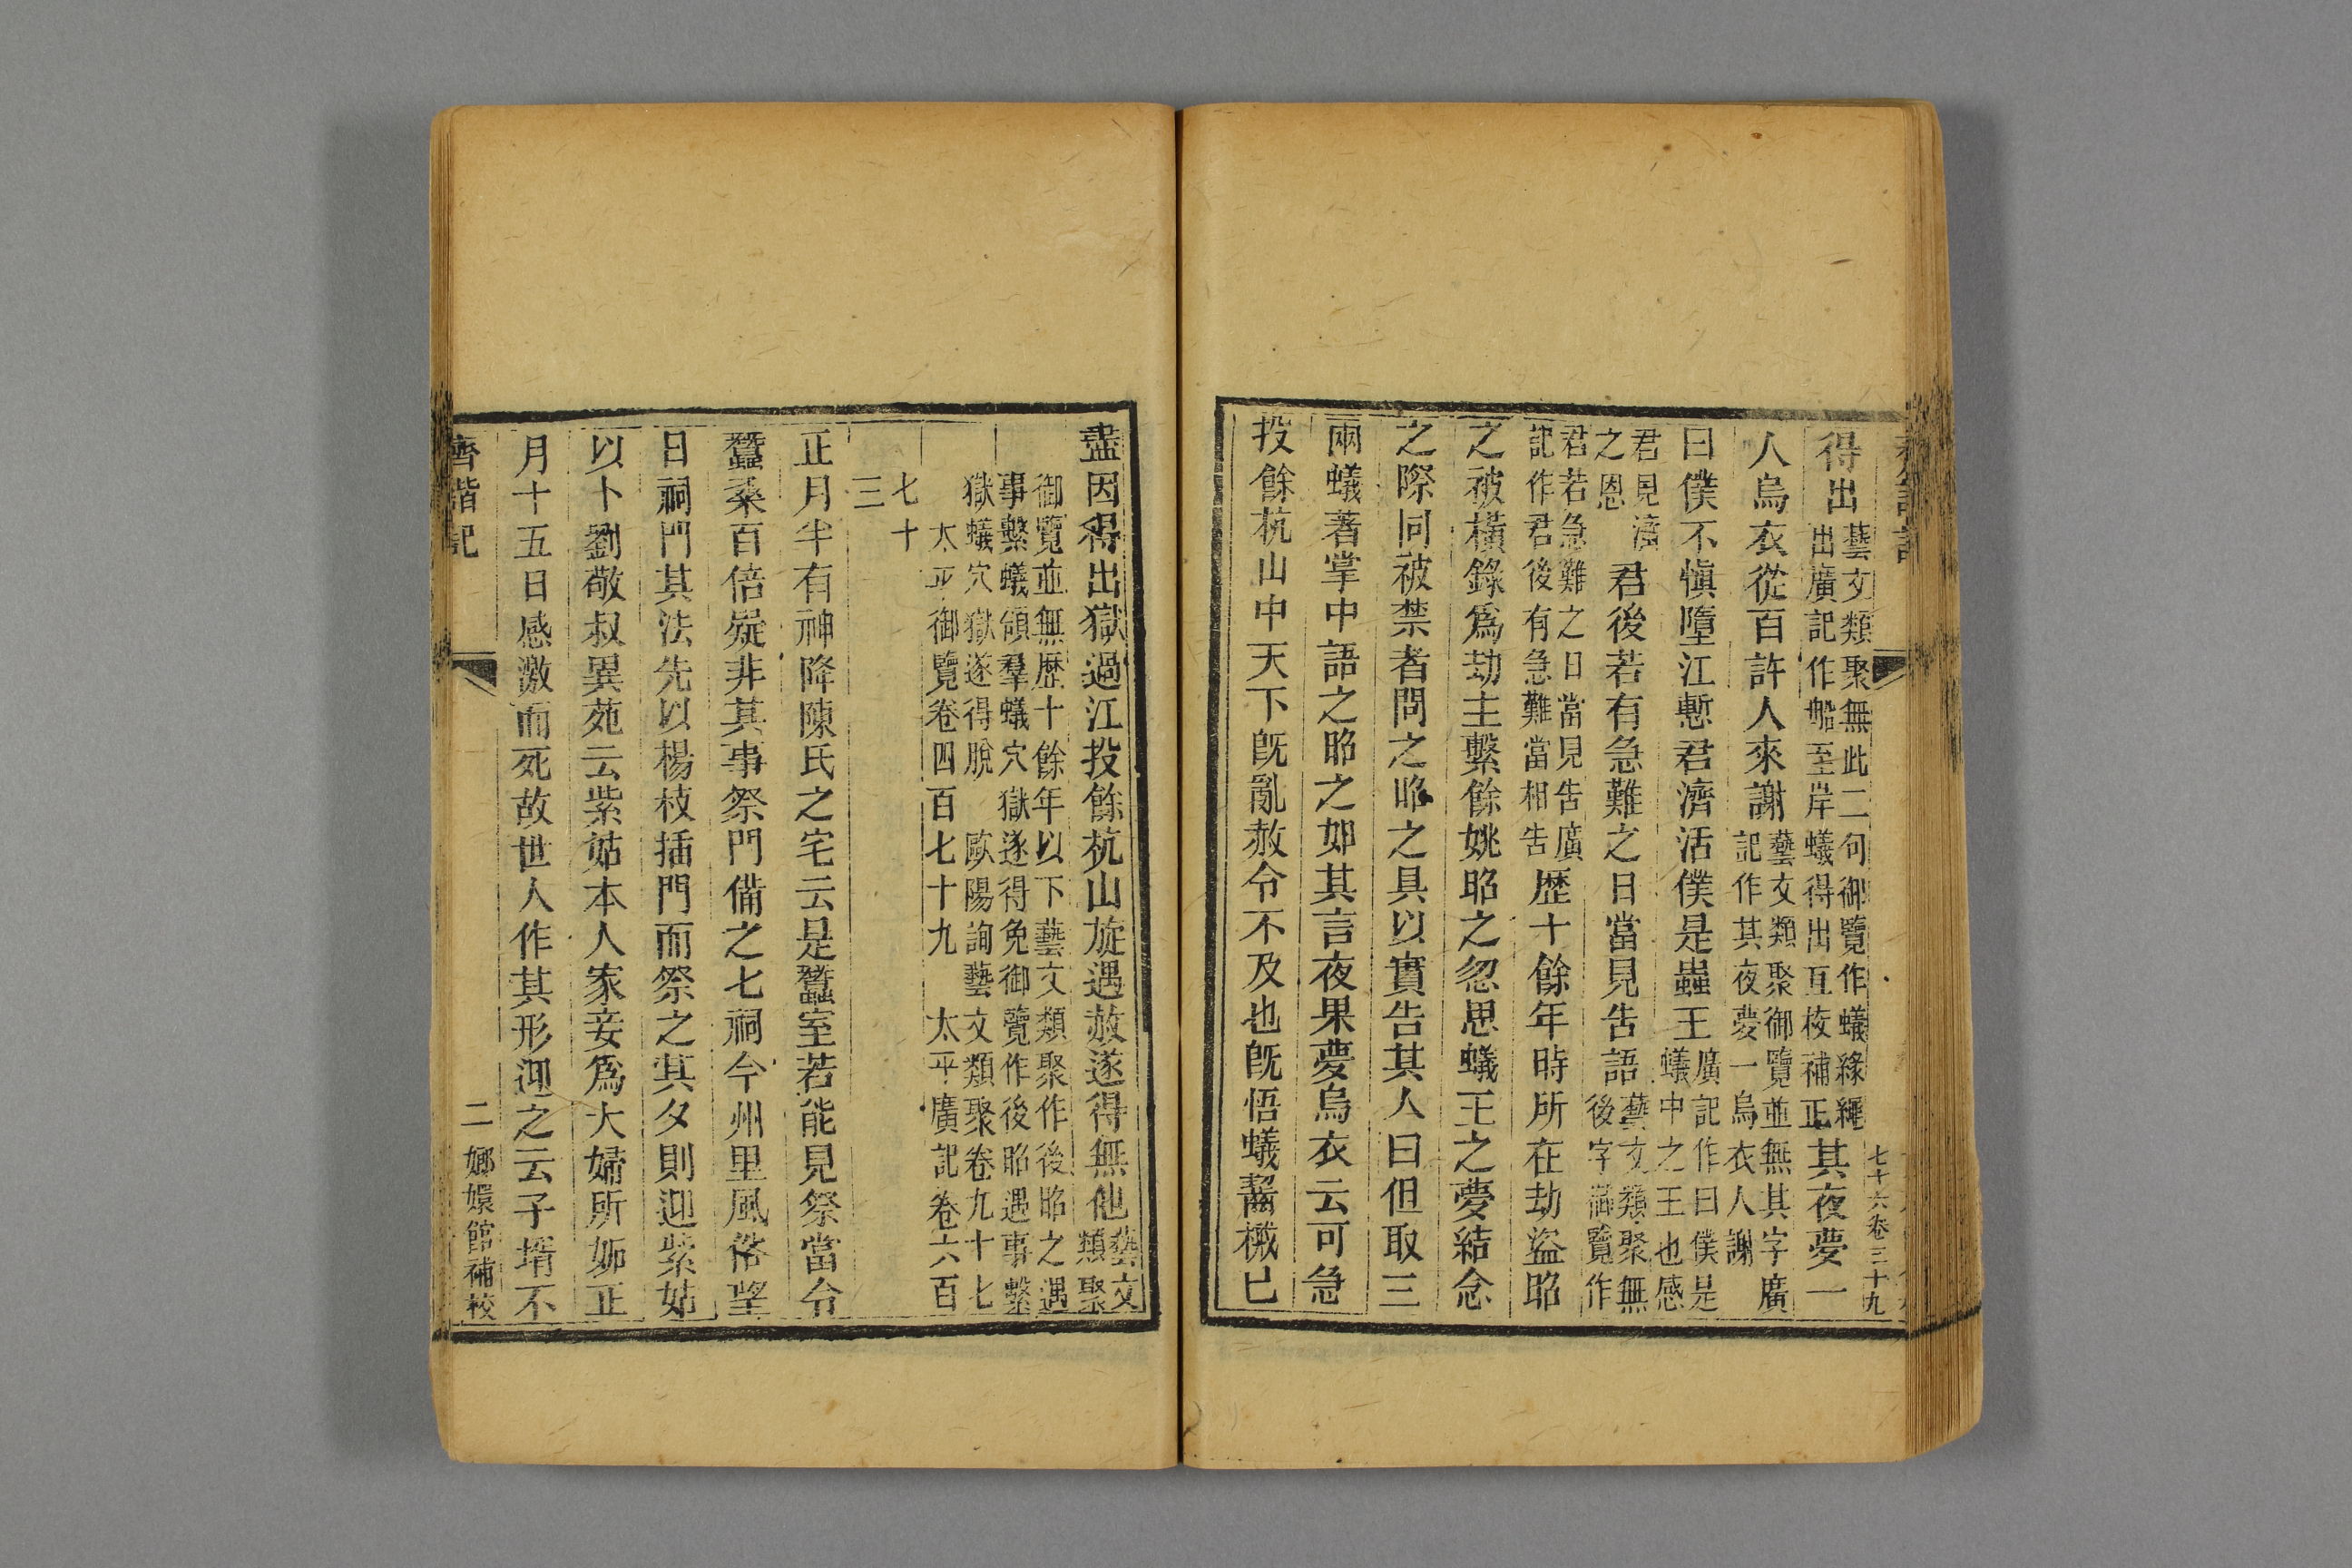 七十六卷三十九
得出藝文類聚無此二句御覽作蟻緣繩出廣記作船至岸蟻得出互校補正其夜夢一
人烏衣從百許人來謝藝文類聚御覽並無其字廣記作其夜夢一烏衣人謝
曰僕不愼墮江慙君濟活僕是蟲王廣記作曰僕是蟻中之王也感
君見濟之恩君後若有急難之日當見告語藝文類聚無後字御覽作
君若急難之日當見告廣記作君後有急難當相告歷十餘年時所在劫盜昭
之被橫錄爲劫主繫餘姚昭之忽思蟻王之夢結念
之際同被禁者問之昭之具以實告其人曰但取三
兩蟻著掌中語之昭之如其言夜果夢烏衣云可急
投餘杭山中天下旣亂赦令不及也旣悟蟻齧械已
盡因得出獄過江投餘杭山旋遇赦遂得無他藝文類聚
御覽並無歷十餘年以下藝文類聚作後昭之遇
事繫蟻領羣蟻穴獄遂得免御覽作後昭遇事繫
獄蟻穴獄遂得脫 歐陽詢藝文類聚卷九十七
太平御覽卷四百七十九 太平廣記卷六百
七十
三
正月半有神降陳氏之宅云是蠶室若能見祭當令
蠶桑百倍疑非其事祭門備之七祠今州里風俗望
日祠門其法先以楊枝插門而祭之其夕則迎紫姑
以卜劉敬叔異苑云紫姑本人家妾爲大婦所妬正
月十五日感激而死故世人作其形迎之云子壻不
齊諧記
二 嫏嬛館補校